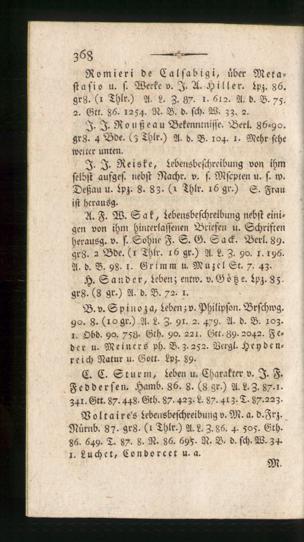 368
Romieri de Calsabigi, über Meta-
stasio u. s. Werke v. J. A. Hiller. Lpz. 86.
gr8. (1 Thlr.) A. L. Z. 87. 1. 612. A. d. B. 75.
2. Gtt. 86. 1254. N. B. d. sch. W. 33. 2.
J. J. Roußeau Bekenntnisse. Berl. 86=90.
gr8. 4 Bde. (3 Thlr.) A. d. B. 104. 1. Mehr sehe
weiter unten.
J. J. Reiske, Lebensbeschreibung von ihm
selbst aufges. nebst Nachr. v. s. Mscpten u. s. w.
Deßau u. Lpz. 8. 83. (1 Thlr. 16 gr.) S. Frau
ist herausg.
A. F. W. Sak, Lebensbeschreibung nebst eini-
gen von ihm hinterlassenen Briefen u. Schriften
herausg. v. s. Sohne F. S. G. Sack. Berl. 89.
gr8. 2 Bde. (1 Thlr. 16 gr.) A. L. Z. 90. 1. 196.
A. d. B. 98. 1. Grimm u. Muzel St. 7. 43.
H. Sander, Leben; entw. v. Götze. Lpz. 85.
gr8. (8 gr.) A. d. B. 72. 1.
B. v. Spinoza, Leben; v. Philipson. Brschwg.
90. 8. (10 gr.) A. L. Z. 91. 2. 479. A. d. B. 103.
1. Obd. 90. 758. Gth. 90. 221. Gtt. 89. 2042. Fe-
der u. Meiners ph. B. 3. 252. Vergl. Heyden-
reich Natur u. Gott. Lpz. 89.
C. C. Sturm, Leben u. Charakter v. J. F.
Feddersen. Hamb. 86. 8. (8 gr.) A. L. Z. 87. 1.
341. Gtt. 87. 448. Gth. 87. 423. L. 87. 413. T. 87. 223.
Voltaire's Lebensbeschreibung v. M. a. d. Frz.
Nürnb. 87. gr8. (1 Thlr.) A. L. Z. 86. 4. 505. Gth.
86. 649. T. 87. 8. N. 86. 695. N. B. d. sch. W. 34.
1. Luchet, Condorcet u. a.
M.